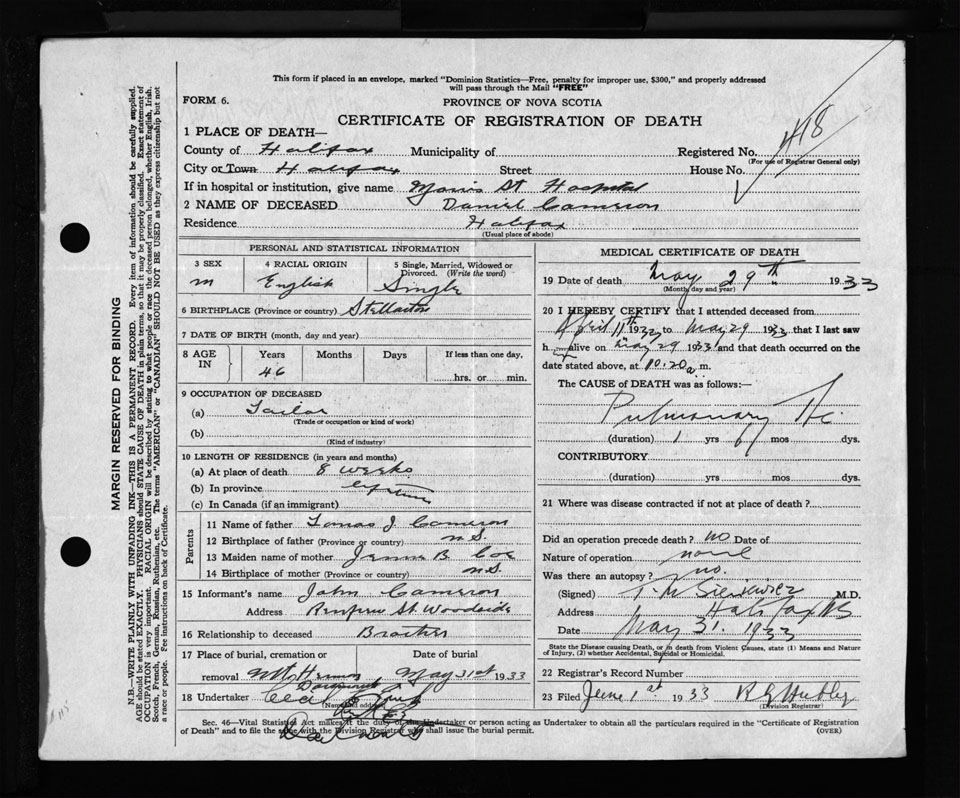 This form if placed in an envelope, marked "Dominion Statistics—Free, penalty for improper use, $300," and properly addressed
will pass through the Mail "FREE"
FORM 6.
PROVINCE OF NOVA SCOTIA
CERTIFICATE OF REGISTRATION OF DEATH
418
1 PLACE OF DEATH—
County of Halifax Municipality of Registered No.
(For use of Registrar General only)
City or Town Halifax Street House No.
If in hospital or institution, give name Morris St. Hospital
2 NAME OF DECEASED Daniel Cameron
Residence Halifax
(Usual place of abode)
MARGIN RESERVED FOR BINDING
N.B.—WRITE PLAINLY WITH UNFADING INK—THIS IS A PERMANENT RECORD. Every item of information should be carefully supplied.
AGE should be stated EXACTLY. PHYSICIANS should STATE CAUSE OF DEATH in plain terms, so that it may be properly classified. Exact statement of
OCCUPATION is very important. RACIAL ORIGIN will be described by stating to what people or race the deceased person belonged, whether English, Irish,
Scotch, French, German, Russian, Ruthenian, etc. The terms "AMERICAN" or "CANADIAN" SHOULD NOT BE USED as they express citizenship but not
a race or people. Fee instructions on back of Certificate.
PERSONAL AND STATISTICAL INFORMATION
3 SEX 4 RACIAL ORIGIN 5 Single, Married, Widowed or
Divorced. (Write the word)
m English Single
6 BIRTHPLACE (Province or country) Stellarton
7 DATE OF BIRTH (month, day and year)
8 AGE IN Years Months Days If less than one day,
46 hrs. or min.
9 OCCUPATION OF DECEASED
(a) Tailor
(Trade or occupation or kind of work)
(b)
(Kind of industry)
10 LENGTH OF RESIDENCE (in years and months)
(a) At place of death 8 weeks
(b) In province
(c) In Canada (if an immigrant)
Parents
11 Name of father Tomas J. Cameron
12 Birthplace of father (Province or country) N.S.
13 Maiden name of mother B. Coe
14 Birthplace of mother (Province or country) N.S.
15 Informant's name John Cameron
Address Renfrew St. Woodside
16 Relationship to deceased Brother
17 Place of burial, cremation or Date of burial
removal Mt. Hermon May 31st 1933
18 Undertaker
(Name and address)
MEDICAL CERTIFICATE OF DEATH
19 Date of death May 29th 1933
(Month, day and year)
20 I HEREBY CERTIFY that I attended deceased from
April 11th 1933 to May 29 1933 that I last saw
h im alive on May 29 1933 and that death occurred on the
date stated above, at 10.20 a. m.
The CAUSE OF DEATH was as follows:—
Pulmonary
(duration) 1 yrs 6 mos dys.
CONTRIBUTORY
(duration) yrs mos dys.
21 Where was disease contracted if not at place of death?
Did an operation precede death? no Date of
Nature of operation none
Was there an autopsy? no.
(Signed) T. M. Sieniewicz M.D.
Address Halifax NS
Date May 31. 1933
State the Disease causing Death, or in death from Violent Causes, state (1) Means and Nature
of Injury, (2) whether Accidental, Suicidal or Homicidal.
22 Registrar's Record Number
23 Filed June 1st 1933
(Division Registrar)
Sec. 46—Vital Statistics Act makes it the duty of the Undertaker or person acting as Undertaker to obtain all the particulars required in the "Certificate of Registration
of Death" and to file the same with the Division Registrar who shall issue the burial permit. (OVER)